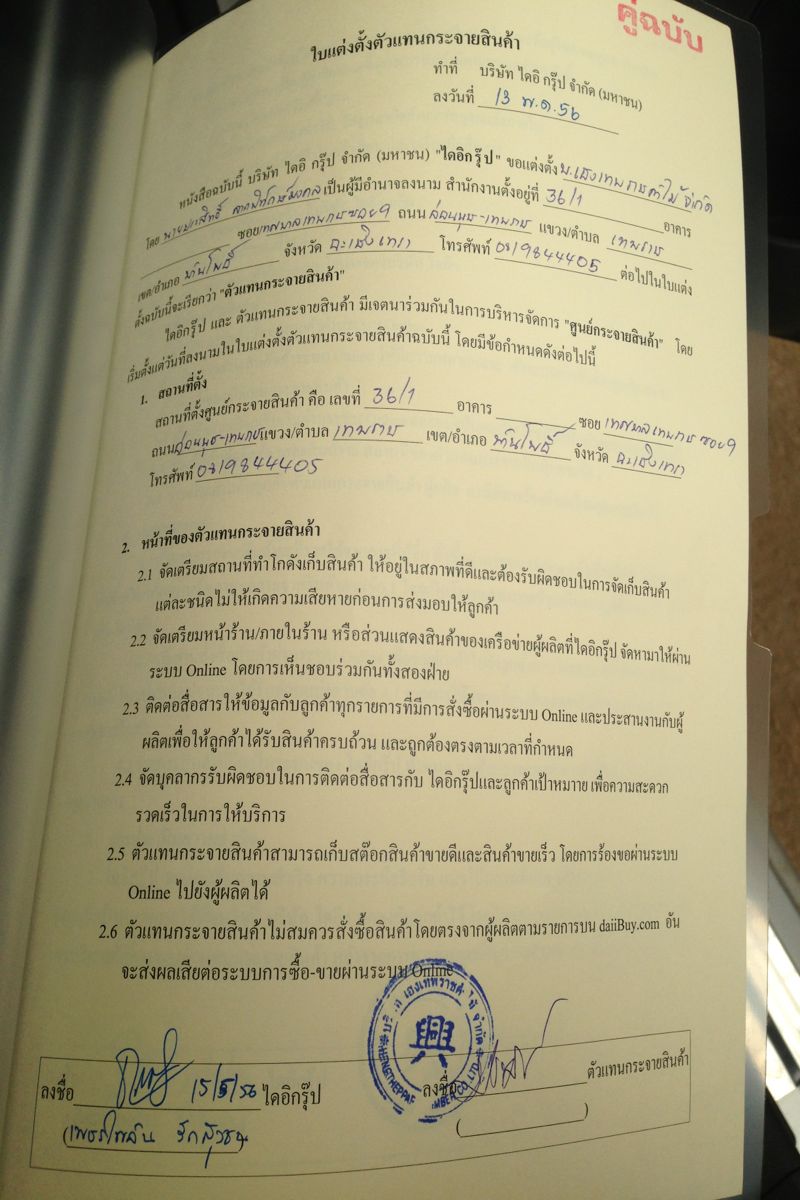 คู่ฉบับ
ใบแต่งตั้งตัวแทนกระจายสินค้า
ทำที่ บริษัท ไดอิ กรุ๊ป จำกัด (มหาชน)
ลงวันที่ 13 พ.ค. 56
หนังสือฉบับนี้ บริษัท ไดอิ กรุ๊ป จำกัด (มหาชน) "ไดอิกรุ๊ป" ขอแต่งตั้ง
โดย เป็นผู้มีอำนาจลงนาม สำนักงานตั้งอยู่ที่ 36/1 อาคาร
ซอย เทศบาลเทพราชซอย9 ถนน แขวง/ตำบล เทพราช
เขต/อำเภอ บ้านโพธิ์ จังหวัด ฉะเชิงเทรา โทรศัพท์ 0819844405 ต่อไปในใบแต่ง
ตั้งฉบับนี้จะเรียกว่า "ตัวแทนกระจายสินค้า"
ไดอิกรุ๊ป และ ตัวแทนกระจายสินค้า มีเจตนาร่วมกันในการบริหารจัดการ "ศูนย์กระจายสินค้า" โดย
เริ่มตั้งแต่วันที่ลงนามในใบแต่งตั้งตัวแทนกระจายสินค้าฉบับนี้ โดยมีข้อกำหนดดังต่อไปนี้
1. สถานที่ตั้ง
สถานที่ตั้งศูนย์กระจายสินค้า คือ เลขที่ 36/1 อาคาร ซอย เทศบาลเทพราช ซอย9
ถนน แขวง/ตำบล เทพราช เขต/อำเภอ บ้านโพธิ์ จังหวัด ฉะเชิงเทรา
โทรศัพท์ 0819844405
2. หน้าที่ของตัวแทนกระจายสินค้า
2.1 จัดเตรียมสถานที่ทำโกดังเก็บสินค้า ให้อยู่ในสภาพที่ดีและต้องรับผิดชอบในการจัดเก็บสินค้า
แต่ละชนิดไม่ให้เกิดความเสียหายก่อนการส่งมอบให้ลูกค้า
2.2 จัดเตรียมหน้าร้าน/ภายในร้าน หรือส่วนแสดงสินค้าของเครือข่ายผู้ผลิตที่ไดอิกรุ๊ป จัดหามาให้ผ่าน
ระบบ Online โดยการเห็นชอบร่วมกันทั้งสองฝ่าย
2.3 ติดต่อสื่อสารให้ข้อมูลกับลูกค้าทุกรายการที่มีการสั่งซื้อผ่านระบบ Online และประสานงานกับผู้
ผลิตเพื่อให้ลูกค้าได้รับสินค้าครบถ้วน และถูกต้องตรงตามเวลาที่กำหนด
2.4 จัดบุคลากรรับผิดชอบในการติดต่อสื่อสารกับ ไดอิกรุ๊ปและลูกค้าเป้าหมาาย เพื่อความสะดวก
รวดเร็วในการให้บริการ
2.5 ตัวแทนกระจายสินค้าสามารถเก็บสต๊อกสินค้าขายดีและสินค้าขายเร็ว โดยการร้องขอผ่านระบบ
Online ไปยังผู้ผลิตได้
2.6 ตัวแทนกระจายสินค้าไม่สมควรสั่งซื้อสินค้าโดยตรงจากผู้ผลิตตามรายการบน daiiBuy.com อัน
จะส่งผลเสียต่อระบบการซื้อ-ขายผ่านระบบ Online
興
ลงชื่อ 15/5/56 ไดอิกรุ๊ป ลงชื่อ ตัวแทนกระจายสินค้า